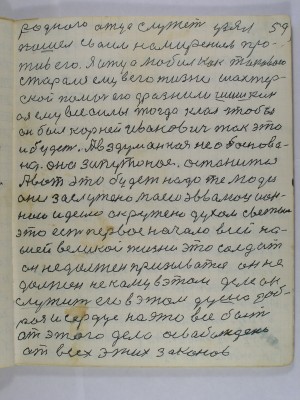 родного отца служет уеял 59
пошел своим намиреньь про-
тив его. Я отца любил как таковаво
старался ему в его жизни шахтер-
ской помоч его дразнили шишкин
а я ему все силы тогда клал чтобы
он был корней иванович так это
и будет. А вздуманная необоснова-
на. она запутаное. останится
А вот это будет надо те моды
они заслужено моего эвалюцион-
ного идеею окружено духом светим
это есть первое начало всей на-
шей великой жизни это солдат
он недолжен призыватся он не
должен некому в этом деле он
служит его в этом душа доб-
рая и сердце на это все быть
от этого дела освобожден
от всех этих законов